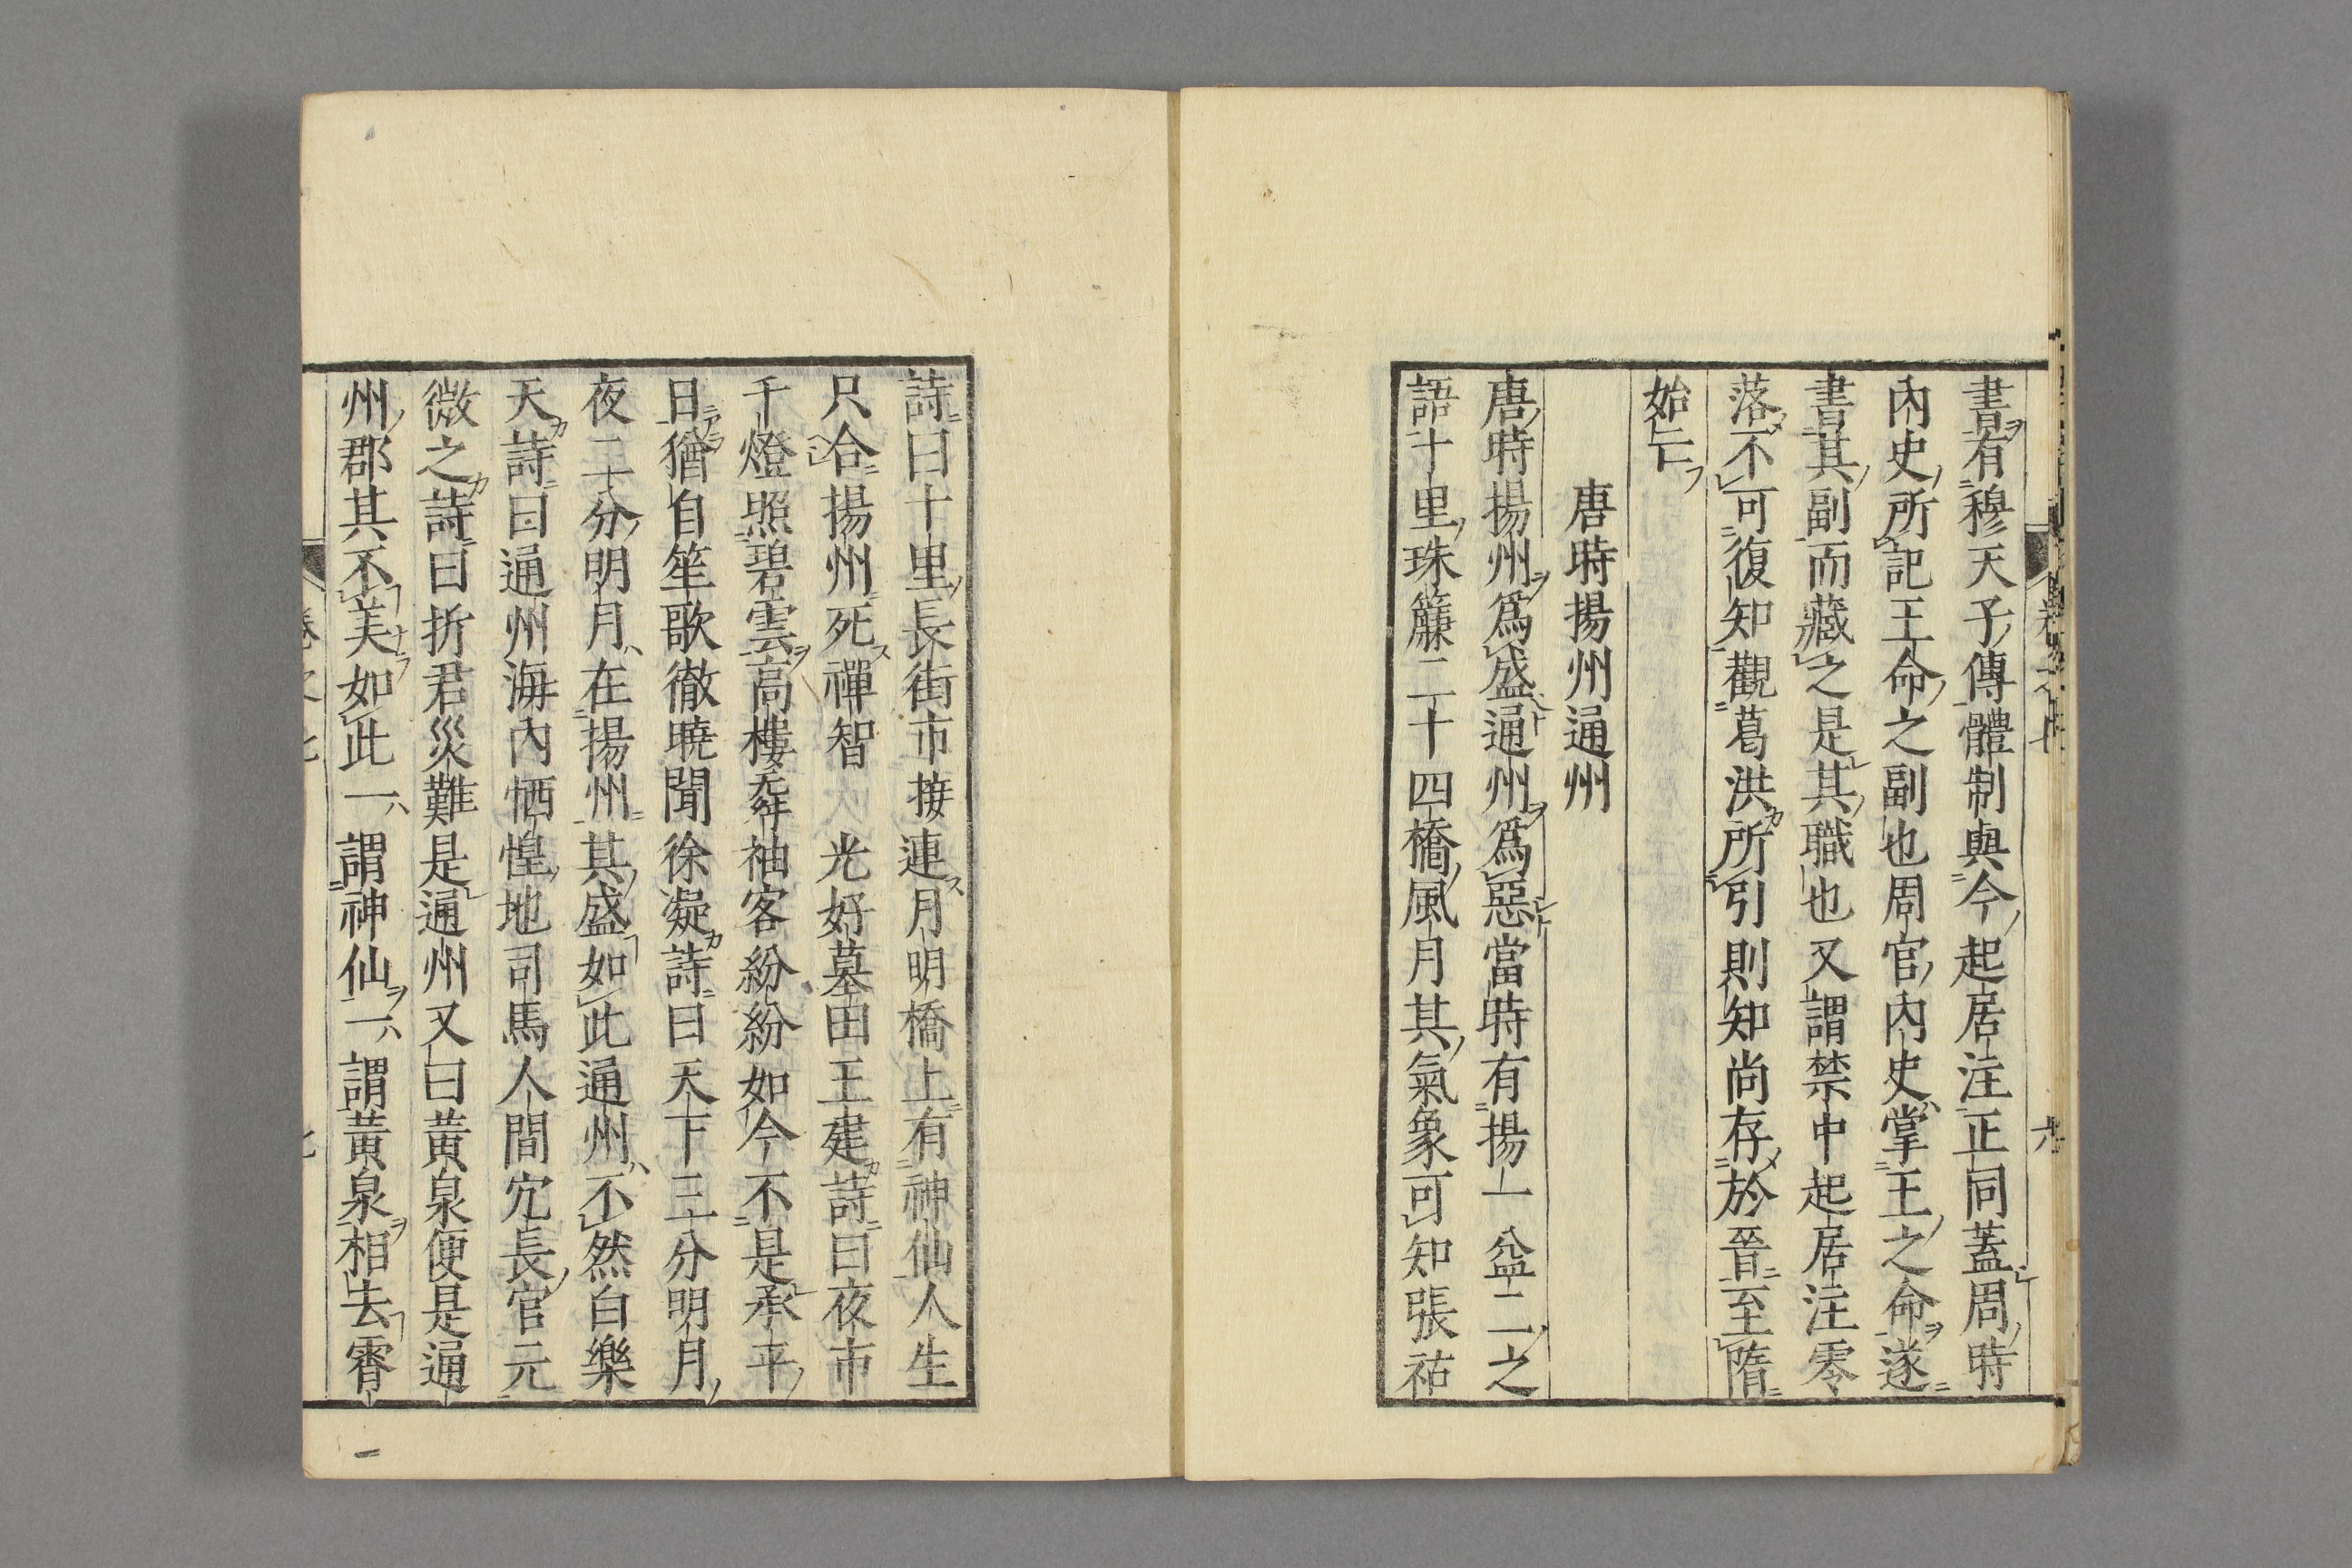 書有穆天子傳體制與今起居注正同蓋周時
内史所記王命之副也周官内史掌王之命遂
書其副而藏之是其職也又謂禁中起居注零
落不可復知觀葛洪所引則知尚存於晉至隋
始亡
唐時揚州通州
唐時揚州爲盛通州爲惡當時有揚一益二之
語十里珠簾二十四橋風月其氣象可知張祜
詩曰十里長街市接連月明橋上有神仙人生
只合揚州死禪智 光好墓田王建詩曰夜市
千燈照碧雲高樓 袖客紛紛如今不是承平
日猶自笙歌徹曉聞徐凝詩曰天下三分明月
夜二分明月在揚州其盛如此通州不然白樂
天詩曰通州海内恓惶地司馬人間宂長官元
微之詩曰折君災難是通州又曰黃泉便是通
州郡其不美如此一謂神仙一謂黃泉相去霄